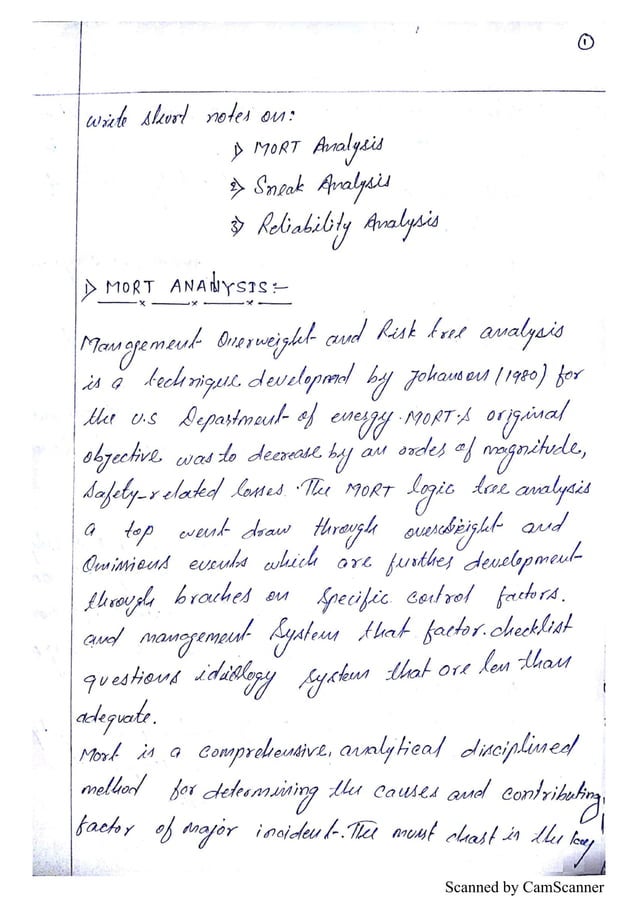 ①
write short notes on:
1> MORT Analysis
2> Sneak Analysis
3> Reliability Analysis
1> MORT ANALYSIS:-
Management Overweight and Risk tree analysis
is a technique developmed by Johanson (1980) for
the U.S Department of energy. MORT's original
objective was to decrease by an order of magnitude,
Safety-related losses. The MORT logic tree analysis
a top went draw through oversight and
Omissions events which are further development
through braches on specific control factors.
and management System that factor. checklist
questions system that are len than
adequate.
Mort is a comprehensive, analytical disciplined
method for determining the causes and contributing
factor of major incident. The chart is the key
Scanned by CamScanner